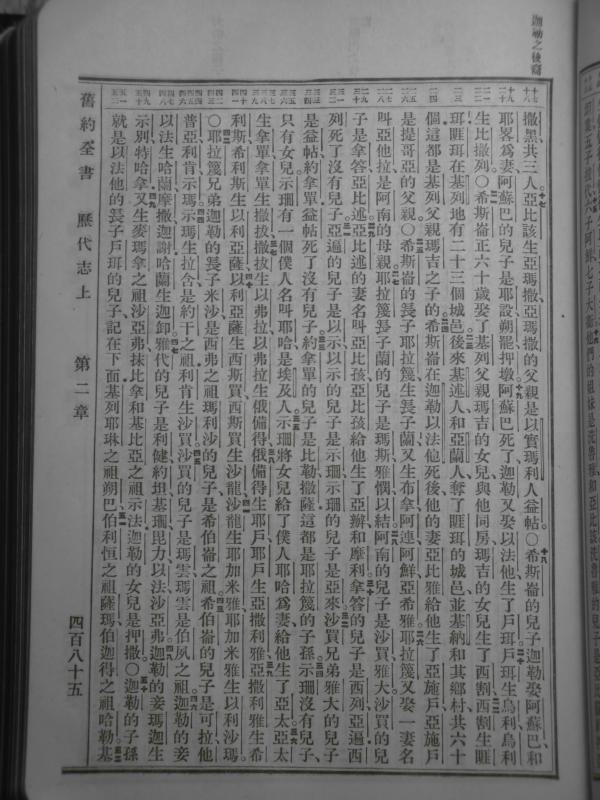 迦勒之後裔
撒黑共三人亞比該生亞瑪撒亞瑪撒的父親是以實瑪利人益帖○希斯崙的兒子迦勒娶阿蘇巴和
耶畧爲妻阿蘇巴的兒子是耶設朔罷押墩阿蘇巴死了迦勒又娶以法他生了戶珥戶珥生烏利烏利
生比撒列○希斯崙正六十歲娶了基列父親瑪吉的女兒與他同房瑪吉的女兒生了西割西割生睚
珥睚珥在基列地有二十三個城邑後來基述人和亞蘭人奪了睚珥的城邑並基納和其鄉村共六十
個這都是基列父親瑪吉之子的希斯崙在迦勒以法他死後他的妻亞比雅給他生了亞施戶亞施戶
是提哥亞的父親○希斯崙的長子耶拉篾生長子蘭又生布拿阿連阿鮮亞希雅耶拉篾又娶一妻名
叫亞他拉是阿南的母親耶拉篾長子蘭的兒子是瑪斯雅憫以結阿南的兒子是沙買雅大沙買的兒
子是拿答亞比述亞比述的妻名叫亞比孩亞比孩給他生了亞辦和摩利拿答的兒子是西列亞遍西
列死了沒有兒子亞遍的兒子是以示以示的兒子是示珊示珊的兒子是亞來沙買兄弟雅大的兒子
是益帖約拿單益帖死了沒有兒子約拿單的兒子是比勒撒薩這都是耶拉篾的子孫示珊沒有兒子
只有女兒示珊有一個僕人名叫耶哈是埃及人示珊將女兒給了僕人耶哈爲妻給他生了亞太亞太
生拿單拿單生撒拔撒拔生以弗拉以弗拉生俄備得俄備得生耶戶耶戶生亞撒利雅亞撒利雅生希
利斯希利斯生以利亞薩以利亞薩生西斯買西斯買生沙龍沙龍生耶加米雅耶加米雅生以利沙瑪
○耶拉篾兄弟迦勒的長子米沙是西弗之祖瑪利沙的兒子是希伯崙之祖希伯崙的兒子是可拉他
普亞利肯示瑪示瑪生拉含是約干之祖利肯生沙買沙買的兒子是瑪雲瑪雲是伯夙之祖迦勒的妾
以法生哈蘭摩撒迦謝哈蘭生迦卸雅代的兒子是利健約坦基珊毘力以法沙亞弗迦勒的妾瑪迦生
示別特哈拿又生麥瑪拿之祖沙亞弗抹比拿和基比亞之祖示法迦勒的女兒是押撒○迦勒的子孫
就是以法他的長子戶珥的兒子記在下面基列耶琳之祖朔巴伯利恒之祖薩瑪伯迦得之祖哈勒基
舊約全書 歷代志上 第二章 四百八十五